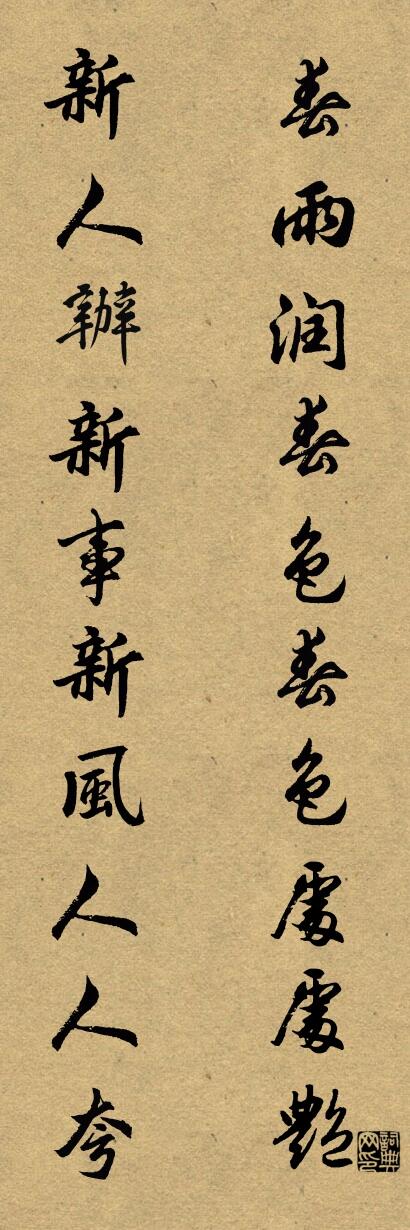 春雨润春色春色處處艷
新人辦新事新風人人夸
詞典网印